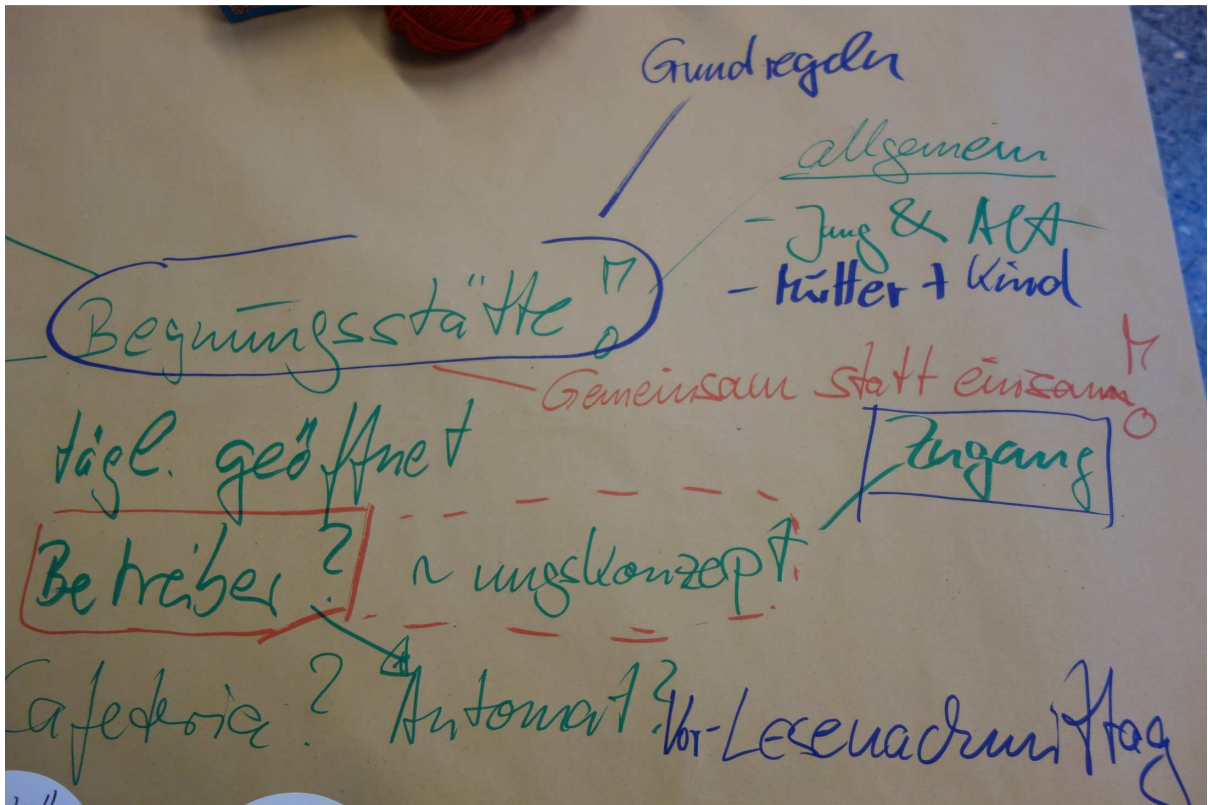 Grundregeln
allgemein
- Jung & Alt
- Mütter + Kind
Begnungsstätte !
Gemeinsam statt einsam !
tägl. geöffnet
Zugang
Betreiber ?
~ ungskonzept
Cafeteria ? Automat ?
Vor-Lesenachmittag